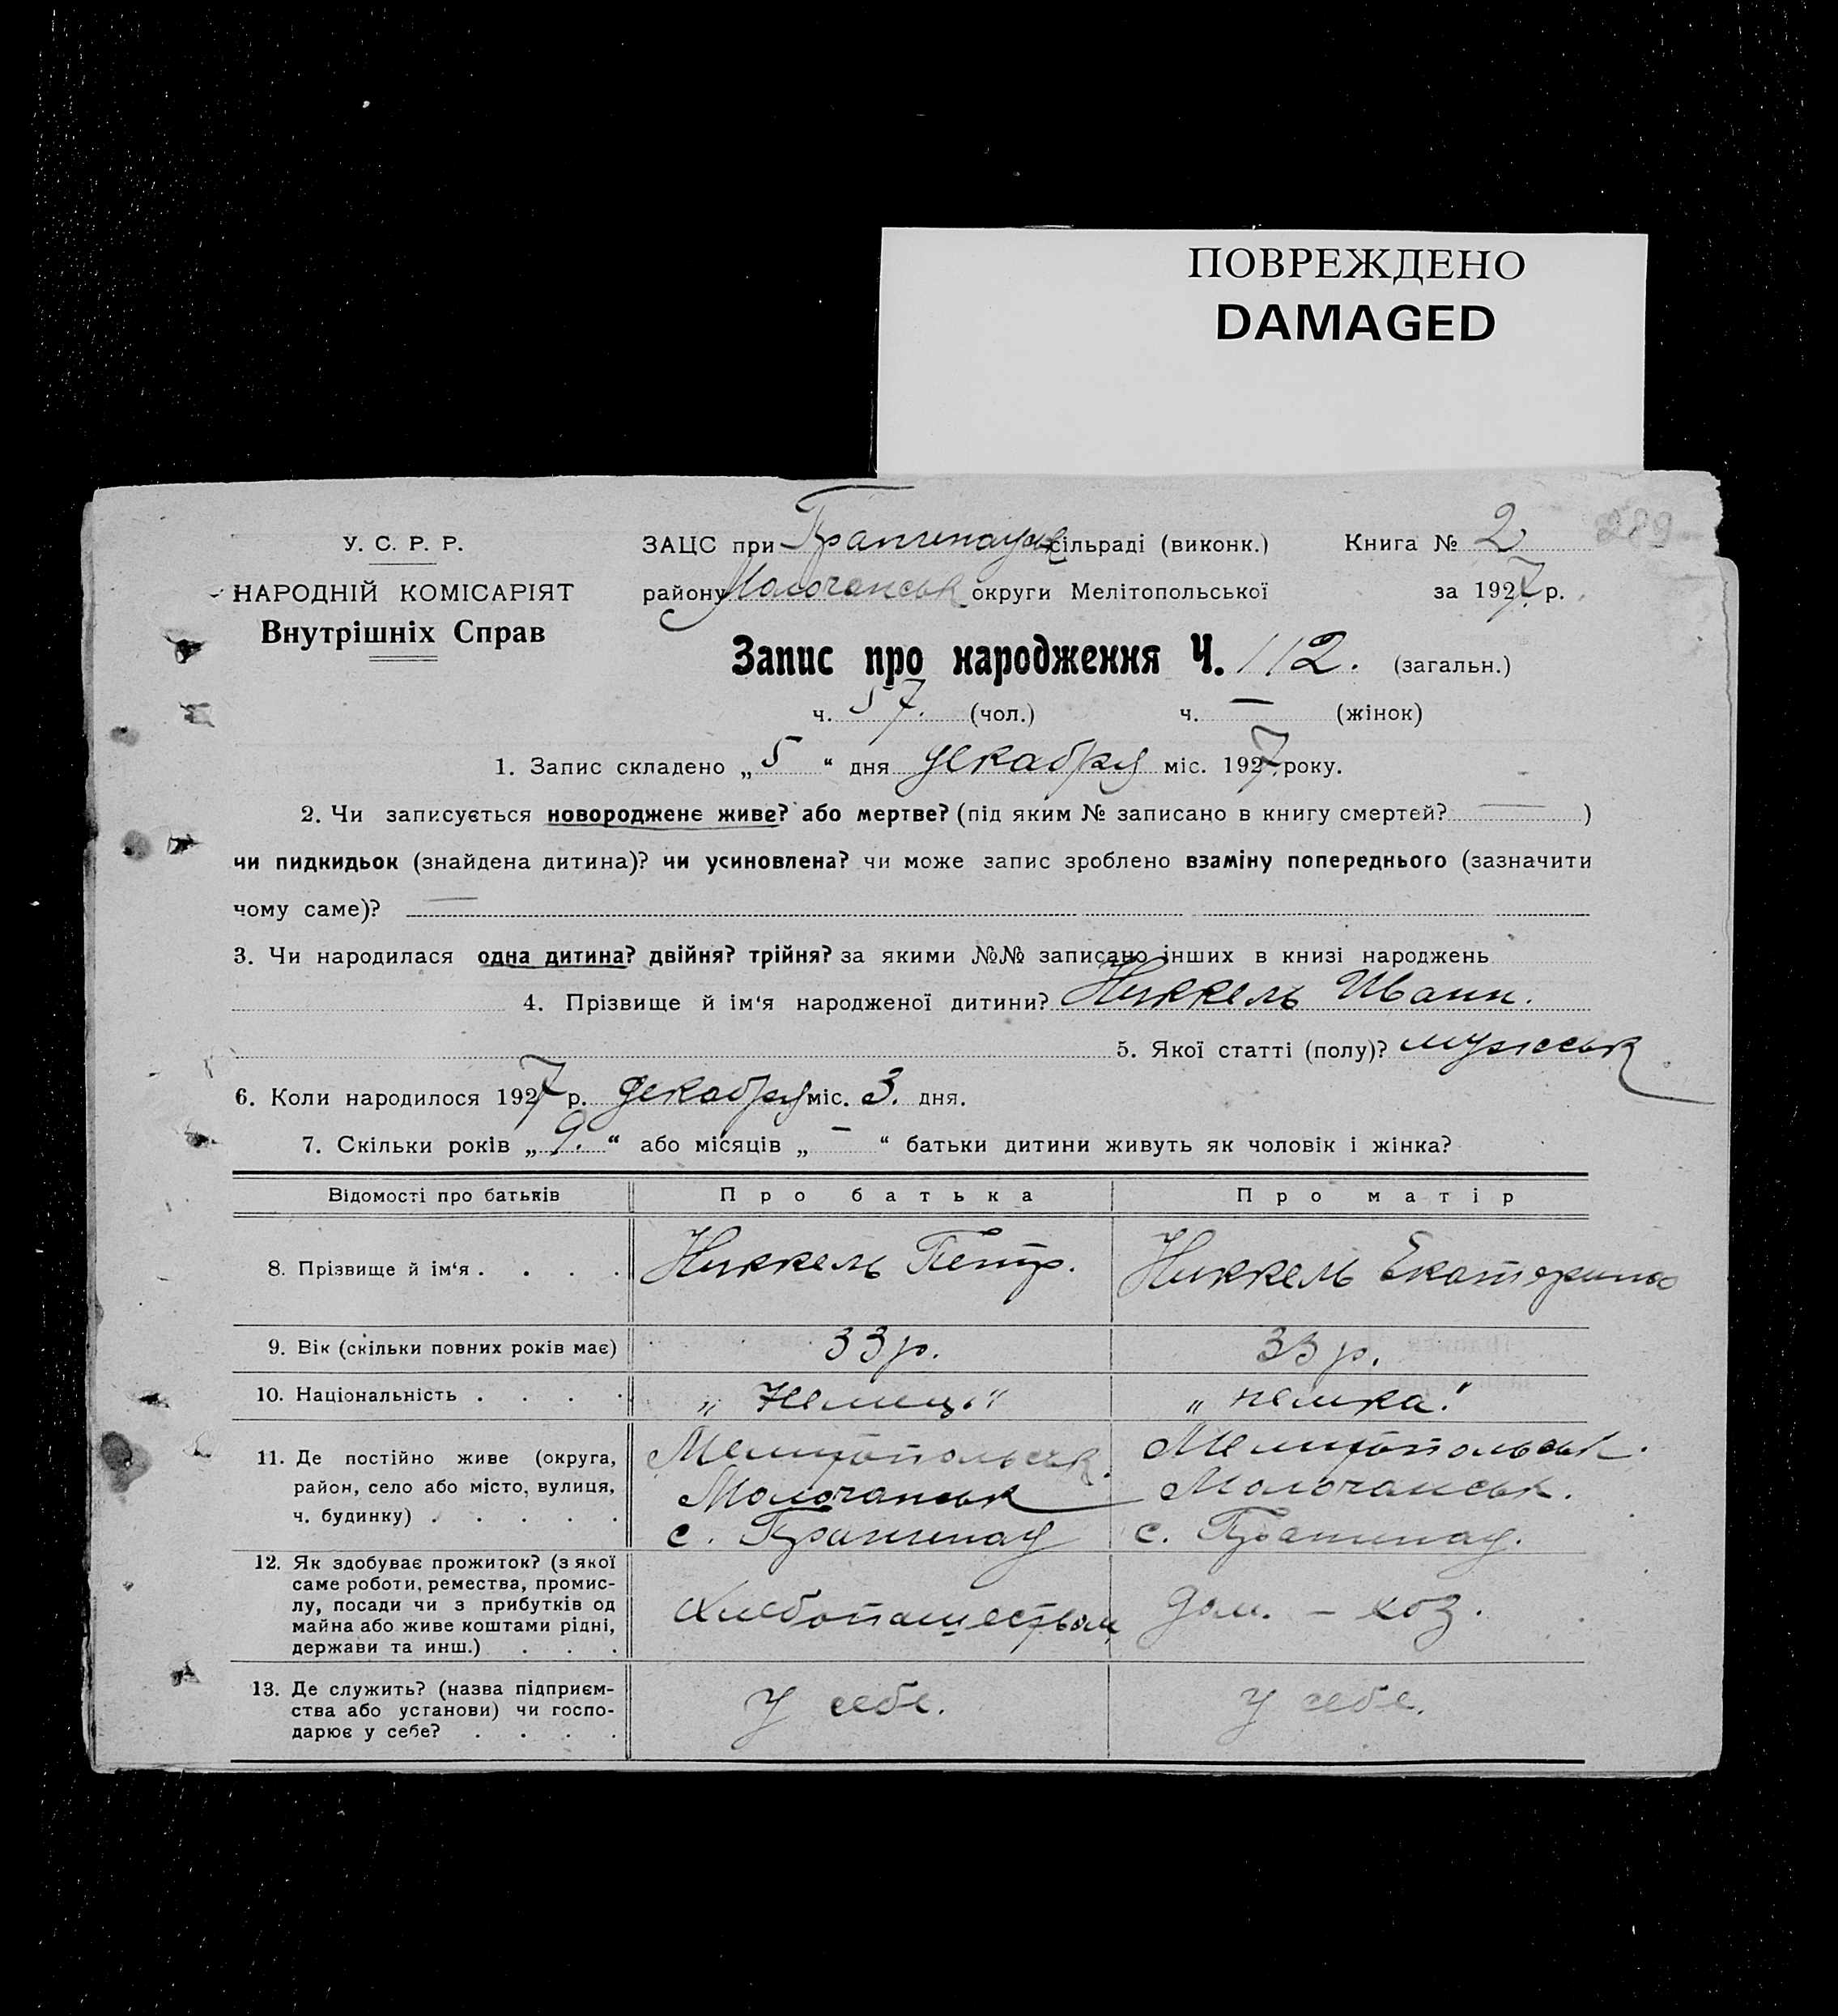 ПОВРЕЖДЕНО
DAMAGED
289
У. С. Р. Р.
НАРОДНІЙ КОМІСАРІЯТ
Внутрішніх Справ
ЗАЦС при сільраді (виконк.) Книга № 2
району Молочанськ округи Мелітопольської за 1927 р.
Запис про народження Ч. 112. (загальн.)
ч. 57. (чол.) ч. — (жінок)
1. Запис складено „ 5 “ дня декабря міс. 1927 року.
2. Чи записується новороджене живе? або мертве? (під яким № записано в книгу смертей? — )
чи пидкидьок (знайдена дитина)? чи усиновлена? чи може запис зроблено взаміну попереднього (зазначити
чому саме)? —
3. Чи народилася одна дитина? двійня? трійня? за якими №№ записано інших в книзі народжень
4. Прізвище й ім‘я народженої дитини? Никкель Иван.
5. Якої статті (полу)? мужськ
6. Коли народилося 1927 р. декабря міс. 3. дня.
7. Скільки років „ 9. “ або місяців „ — “ батьки дитини живуть як чоловік і жінка?
Відомості про батьків Про батька Про матір
8. Прізвище й ім‘я . . . . Никкель Петр. Никкель Екатерина
9. Вік (скільки повних років має) 33 р. 33 р.
10. Національність . . . . „ Немець “ „ немка. “
11. Де постійно живе (округа,
район, село або місто, вулиця,
ч. будинку) . . . . .
Мелитопольськ.
Молочанськ
с.
Мелитопольськ.
Молочанськ.
с.
12. Як здобуває прожиток? (з якої
саме роботи, ремества, промис-
лу, посади чи з прибутків од
майна або живе коштами рідні,
держави та инш.) . . .
Хлебопашеством
Дом. - хоз.
13. Де служить? (назва підприєм-
ства або установи) чи госпо-
дарює у себе? . . . .
У себе.
У себе.